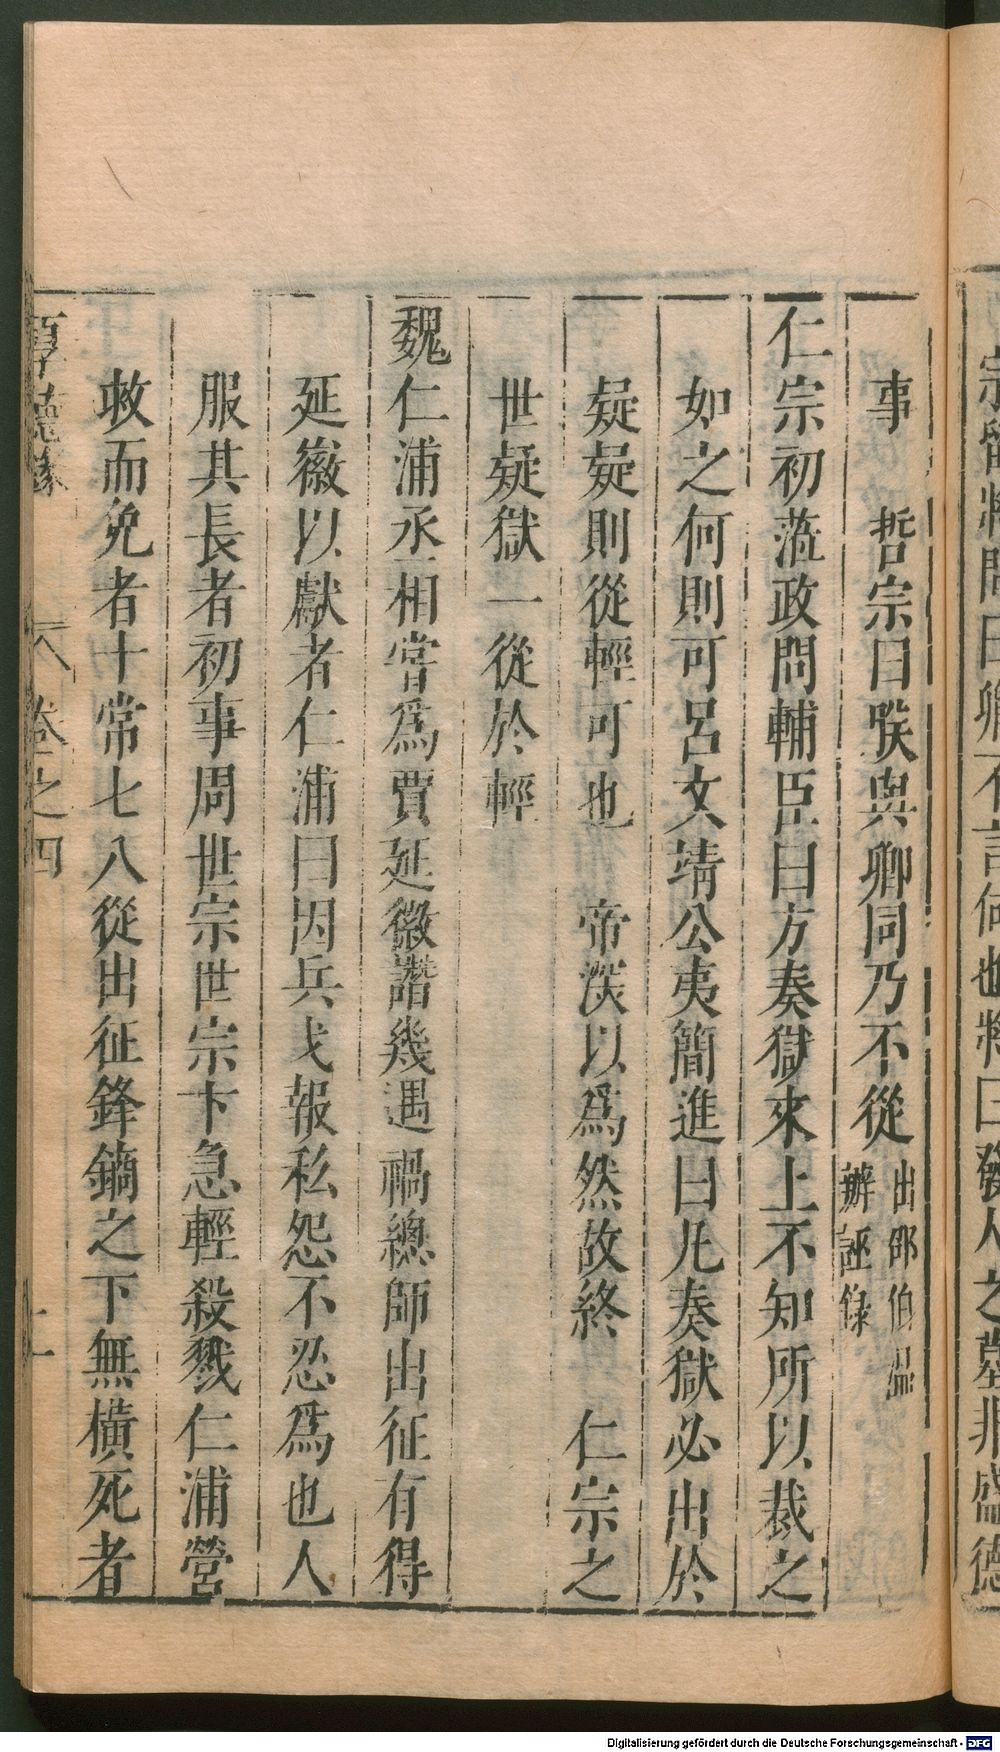 宗
將問曰卿不言何也將曰發人之墓非盛德
事　哲宗曰朕與卿同乃不從出邵伯温
辨誣錄
仁宗初蒞政問輔臣曰方奏獄來上不知所以裁之
如之何則可呂文靖公夷簡進曰凡奏獄必出於
疑疑則從輕可也　帝深以為然故終　仁宗之
世疑獄一從於輕
魏仁浦丞相嘗爲賈延徽譖幾遇禍總師出征有得
延徽以獻者仁浦曰因兵戈報私怨不忍爲也人
服其長者初事周世宗世宗卞急輕殺戮仁浦營
救而免者十常七八從出征鋒鏑之下無橫死者
厚德錄　卷之四
Digitalisierung gefördert durch die Deutsche Forschungsgemeinschaft - DFG